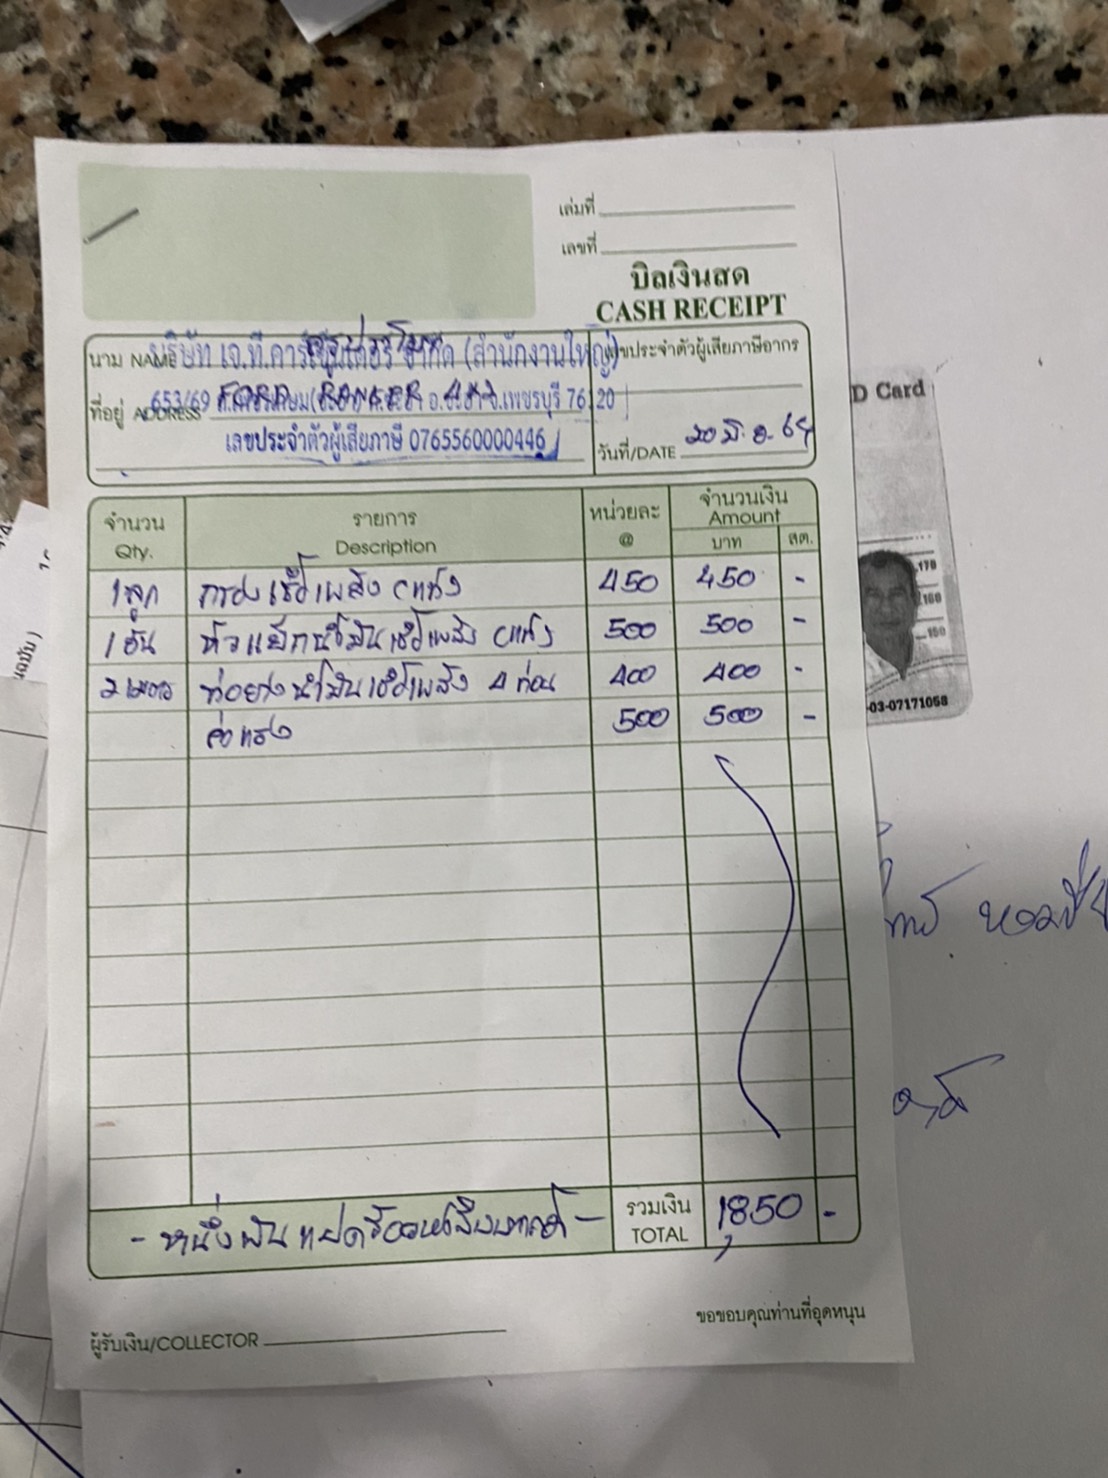 เล่มที่
เลขที่
บิลเงินสด
CASH RECEIPT
นาม NAME บริษัท เจ.ที.คาร์ จำกัด (สำนักงานใหญ่)
เลขประจำตัวผู้เสียภาษีอากร
ที่อยู่ ADDRESS 653/69 จ.เพชรบุรี 76120
FORD RANGER 4x2
เลขประจำตัวผู้เสียภาษี 0765560000446
วันที่/DATE 20 มิ.ย. 64
จำนวน รายการ หน่วยละ จำนวนเงิน
Qty. Description @ Amount
บาท สต.
1 ลูก กรองเชื้อเพลิง (แท้) 450 450 -
1 อัน หัวแย๊กน้ำมันเชื้อเพลิง (แท้) 500 500 -
2 เมตร ท่อยางน้ำมันเชื้อเพลิง 4 ท่อน 400 400 -
ค่าแรง 500 500 -
- หนึ่งพันแปดร้อยห้าสิบบาทถ้วน - รวมเงิน 1,850 -
TOTAL
ขอขอบคุณท่านที่อุดหนุน
ผู้รับเงิน/COLLECTOR
D Card
170
160
150
-03-07171058